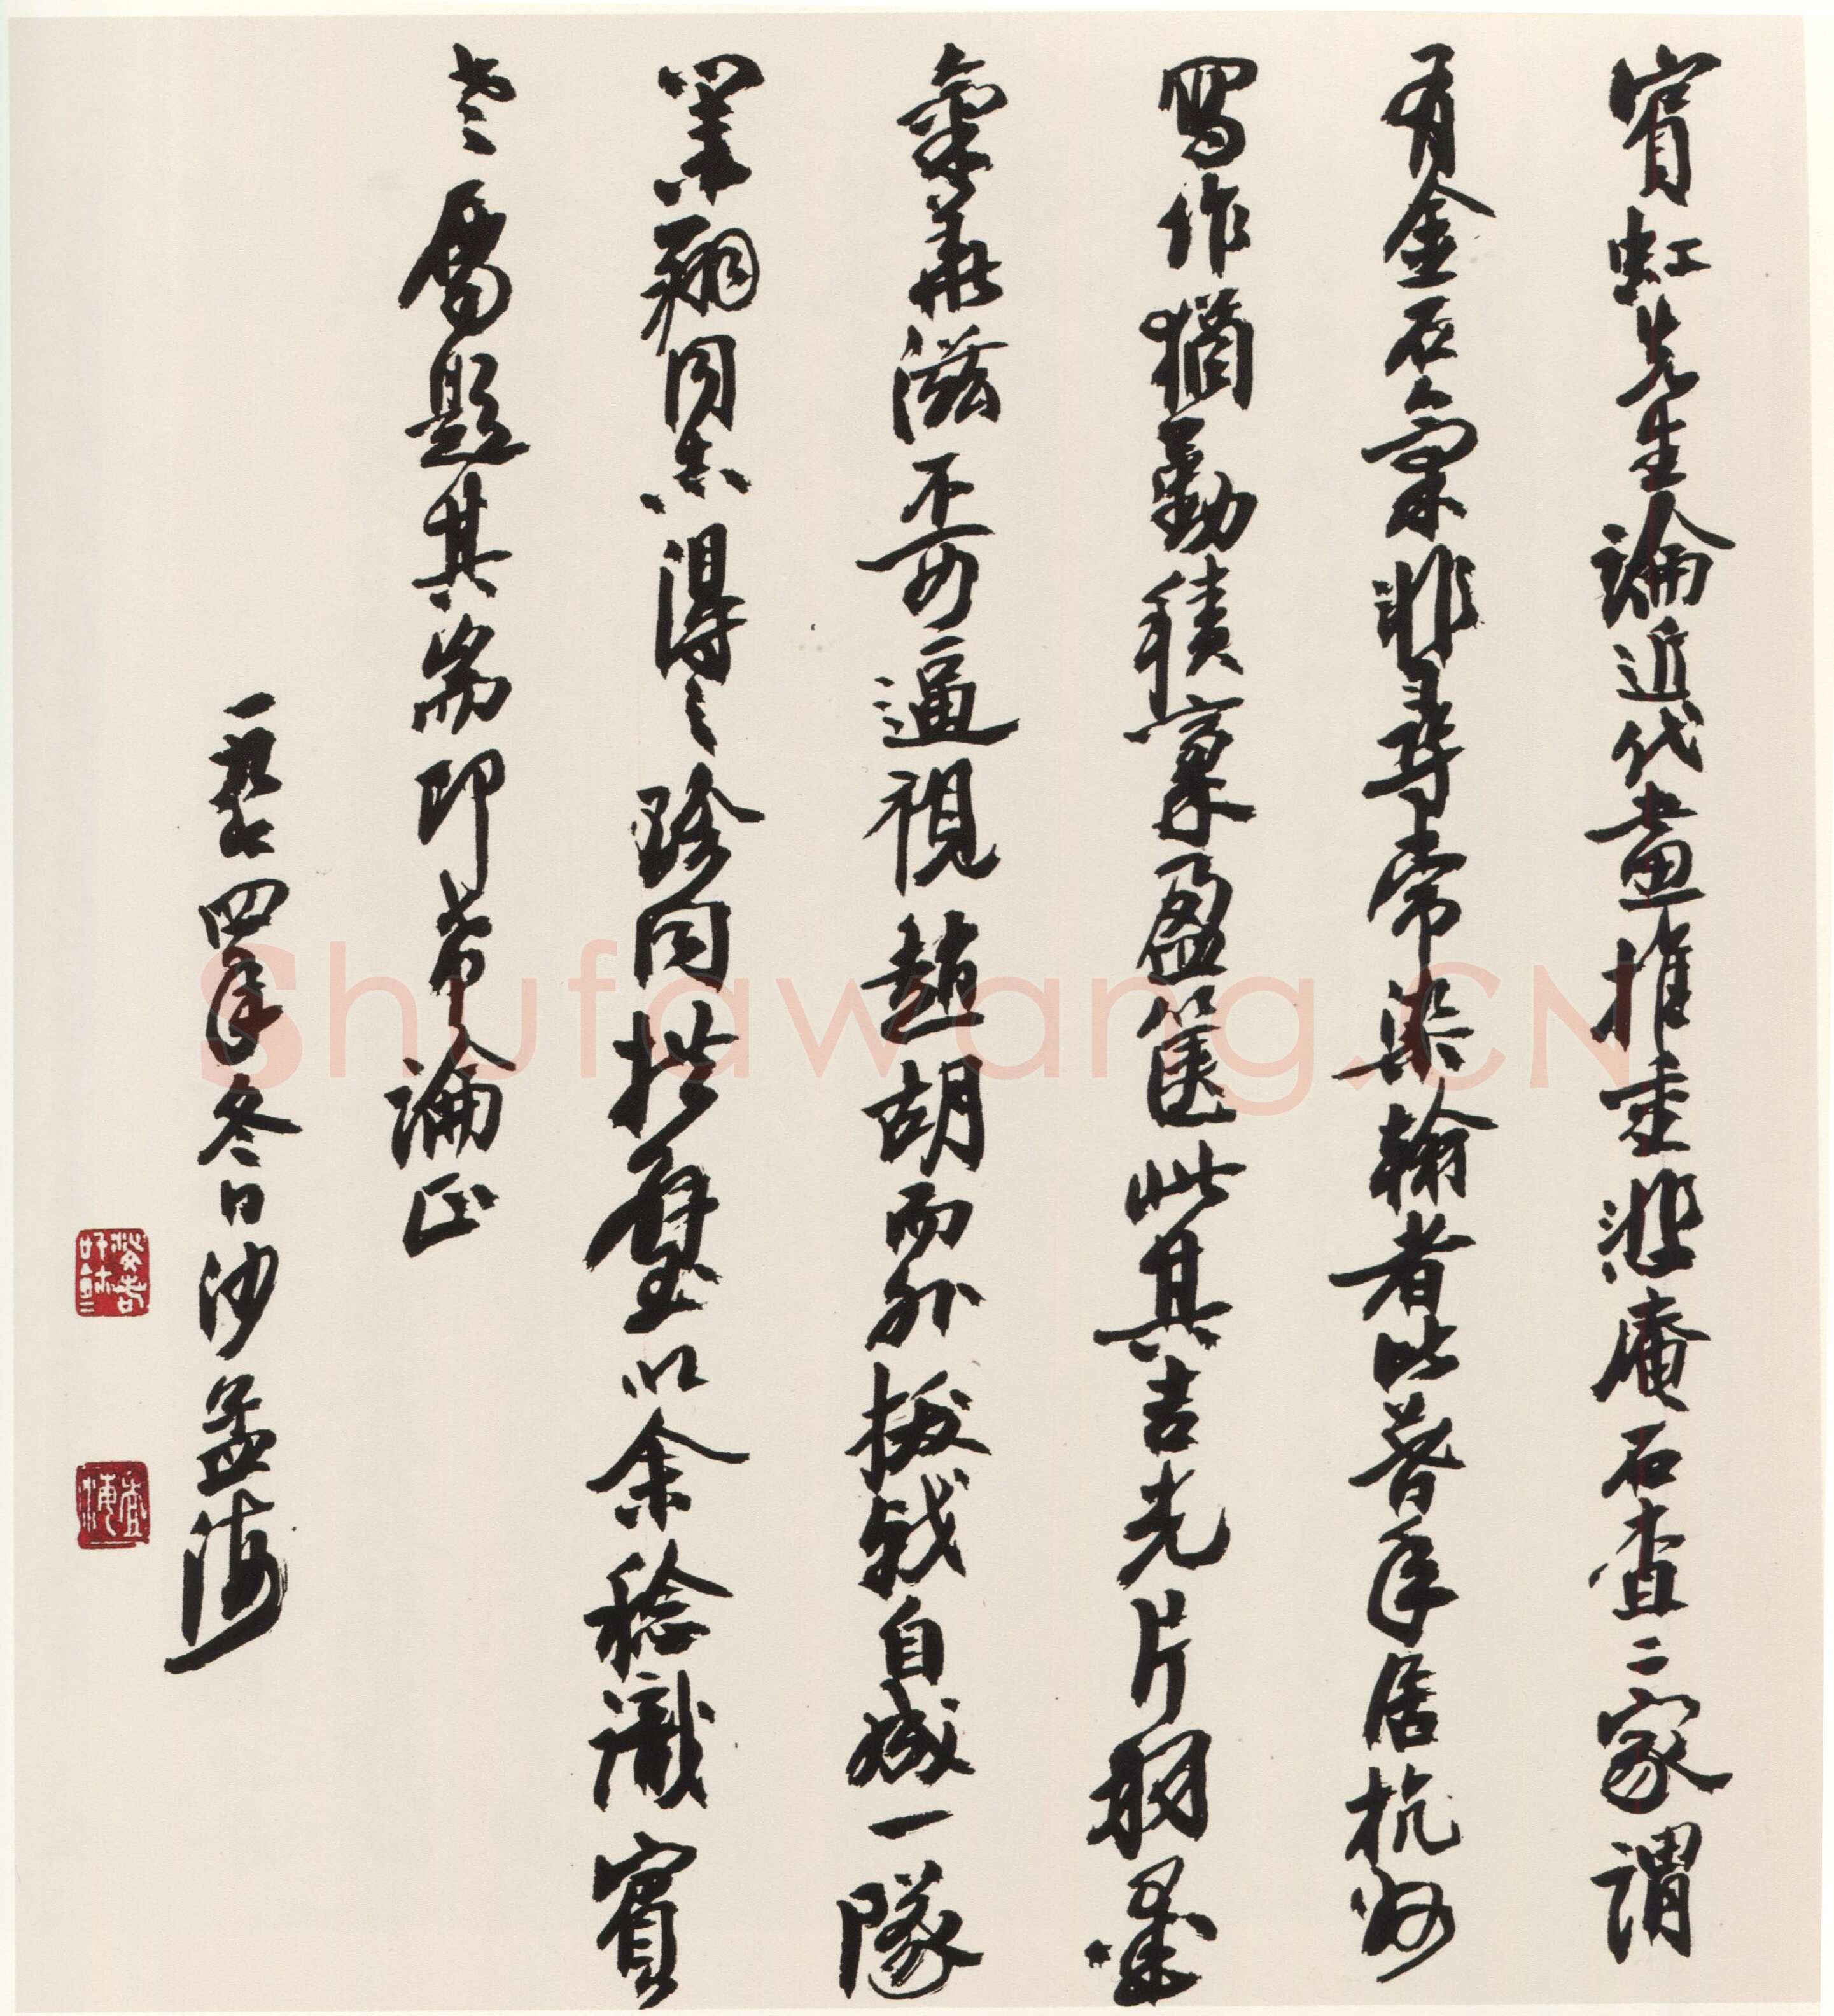 賓虹先生論近代畫推重悲庵石查二家謂
有金石氣非尋常染翰者比暮年居杭州
寫作猶勤積稾盈篋此其吉光片羽墨
氣華滋不可逼視趙胡而外拔戟自成一隊
業翔同志得之珍同拱璧以余稔識賓
老屬題其耑即希論正
一九七四年冬日沙孟海
Shufawang.CN